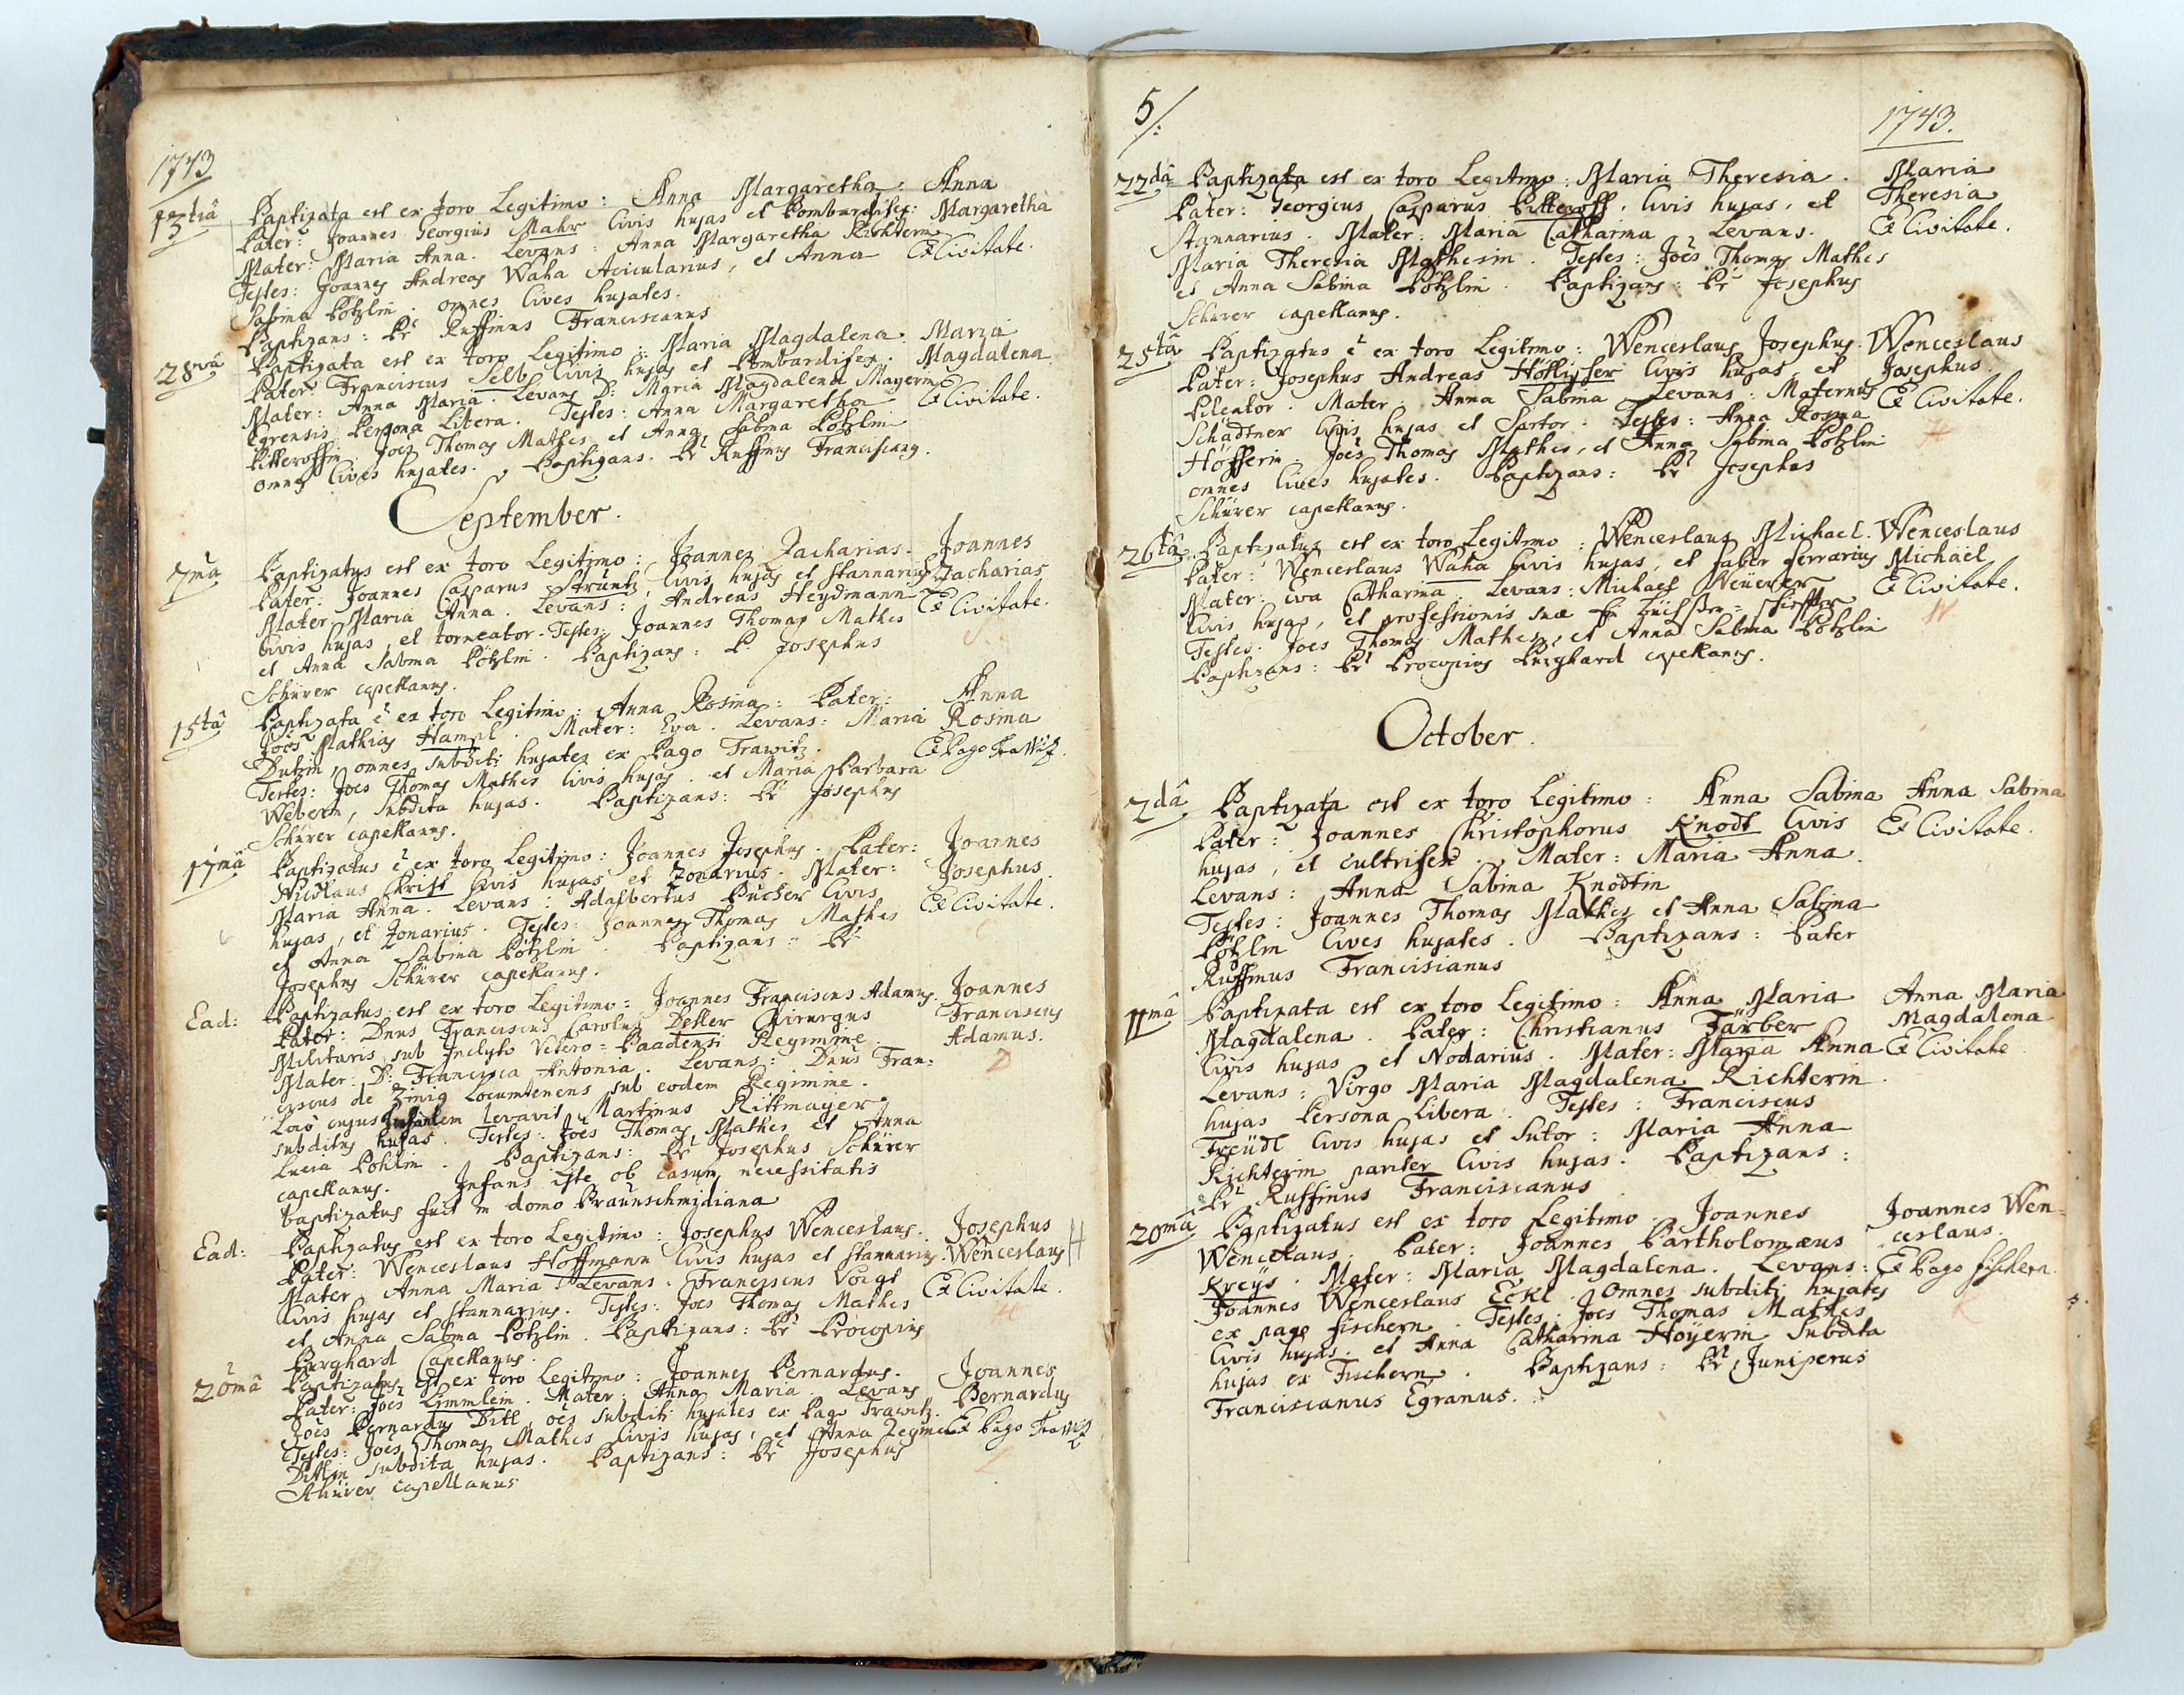 1743
13tiâ Baptizata est ex toro Legitimo: Anna Margaretha. Anna
Pater: Joannes Georgius Mahr Civis hujas et Bombardifex: Margaretha
Mater: Maria Anna. Levans: Anna Margaretha Richterin Ex Civitate.
Testes: Joannes Andreas Waha Acicularius, et Anna
Sabina Pötzlin omnes Cives hujates.
Baptizans: Pr Ruffinus Franciscanus
28vâ Baptizata est ex toro Legitimo: Maria Magdalena. Maria
Pater Franciscus Selb Civis hujas et Bombardifex. Magdalena
Mater: Anna Maria. Levans D: Maria Magdalena Mayerin Ex Civitate.
Egrensis Persona Libera. Testes: Anna Margaretha
Pitteroffin Joês Thomas Mathes et Anna Sabina Pötzlin
omnes Cives hujates. Baptizans. Pr Ruffinus Franciscang.
September.
7mâ Baptizatus est ex toro Legitimo: Joannes Zacharias. Joannes
Pater: Joannes Casparus Strüntz, Civis hujas et stannarius Zacharias
Mater Maria Anna. Levans: Andreas Heydmann Ex Civitate.
Civis hujas et torneator. Testes: Joannes Thomas Mathes
et Anna Sabina Pötzlin. Baptizans: P. Josephus
Schürer capellanus.
15tâ Baptizata ê ex toro Legitimo: Anna Rosina: Pater: Anna
Joês Mathias Hampl. Mater: Eva. Levans: Maria Rosina
omnes subditi hujates ex Pago Trawitz. Ex Pago Trawitz.
Testes: Joês Thomas Mathes Civis hujas. et Maria Barbara
Weberin, subdita hujas. Baptizans: Pr Josephus
Schürer capellanus.
17mâ Baptizatus ê ex toro Legitimo: Joannes Josephus. Pater: Joannes
Nicolaus Christ Civis hujas et Zonarius. Mater: Josephus
Maria Anna. Levans: Adalbertus Pücher Civis Ex Civitate.
hujas, et Zonarius. Testes: Joannes Thomas Mathes
et Anna Sabina Pötzlin. Baptizans: Pr
Josephus Schürer capellanus.
Ead: Baptizatus est ex toro Legitimo: Joannes Franciscus Adamus. Joannes
Pater: Dnus Franciscus Carolus Deller Chirurgus Franciscus
Militaris sub Inclyto Vetero=Baadensi Regimine. Adamus.
Mater: D: Francisca Antonia. Levans: Dnus Fran= D
ciscus de Locumtenens sub eodem Regimine.
Locô cujus Infantem levavit Martinus Rittmayer
subditus hujas. Testes: Joês Thomas Mathes et Anna
Lucia Pöhlin. Baptizans: Pr Josephus Schürer
capellanus. Infans iste ob casum necessitatis
baptizatus fuit in domo Braunschmidiana
Ead: Baptizatus est ex toro Legitimo: Josephus Wenceslaus. Josephus
Pater: Wenceslaus Hoffmann Civis hujas et stannarius. Wenceslaus H
Mater Anna Maria Levans: Franciscus Voigt Ex Civitate.
Civis hujas et stannarius. Testes: Joês Thomas Mathes H
et Anna Sabina Pötzlin. Baptizans: Pr Procopius
Purghard Capellanus.
20mâ Baptizatus est ex toro Legitimo: Joannes Bernardus. Joannes
Pater: Joês Limmlein. Mater: Anna Maria. Levans Bernardus
Joês Bernardus Ditl, oês subditi hujates ex Pago Trawitz. Ex Pago Trawitz
Testes: Joês Thomas Mathes Civis hujas, et Anna Regina
Ditlin subdita hujas. Baptizans: Pr Josephus L
Schürer Capellanus
5/: 1743.
22dâ Baptizata est ex toro Legitimo: Maria Theresia. Maria
Pater: Georgius Casparus Pitteroff. Civis hujas, et Theresia
Stannarius. Mater: Maria Catharina. Levans. Ex Civitate.
Maria Theresia Mathesin. Testes: Joês Thomas Mathes
et Anna Sabina Pötzlin. Baptizans: Pr Josephus
Schürer capellanus.
25tâ Baptizatus ê ex toro Legitimo: Wenceslaus Josephus. Wenceslaus
Pater: Josephus Andreas Höllisser Civis hujas et Josephus
Pileator. Mater. Anna Sabina Levans: Maternus Ex Civitate.
Schädtner Civis hujas et Sartor. Testes: Anna Rosina H
Höfferin. Joês Thomas Mathes, et Anna Sabina Pötzlin
omnes Cives hujates. Baptizans: Pr Josephus
Schürer capellanus.
26tâ Baptizatus est ex toro Legitimo: Wenceslaus Michael. Wenceslaus
Pater: Wenceslaus Waha Civis hujas, et faber ferrarius Michael
Mater: Eva Catharina. Levans: Michael Ex Civitate.
Civis hujas, et professionis suæ W
Testes: Joês Thomas Mathes, et Anna Sabina Pötzlin
Baptizans: Pr Procopius Purghard capellanus.
October.
2dâ Baptizata est ex toro Legitimo: Anna Sabina Anna Sabina
Pater: Joannes Christophorus Knodt Civis Ex Civitate.
hujas, et cultrifex. Mater: Maria Anna.
Levans: Anna Sabina Knodtin
Testes: Joannes Thomas Mathes et Anna Sabina
Pötzlin Cives hujates. Baptizans: Pater
Ruffinus Franciscanus
11mâ Baptizata est ex toro Legitimo: Anna Maria Anna Maria
Magdalena. Pater: Christianus Färber Magdalena
Civis hujas et Nodarius. Mater: Maria Anna Ex Civitate
Levans: Virgo Maria Magdalena Richterin.
hujas Persona Libera. Testes: Franciscus
Treüdl Civis hujas et Sutor: Maria Anna
Richterin pariter Civis hujas. Baptizans:
Pr Ruffinus Franciscanus
20mâ Baptizatus est ex toro Legitimo. Joannes Joannes Wen=
Wenceslaus. Pater: Joannes Bartholomæus ceslaus.
Kreÿs. Mater: Maria Magdalena. Levans: Ex Pago fischern.
Joannes Wenceslaus Eckl. Omnes subditi hujates
ex pago fischern. Testes: Joês Thomas Mathes
Civis hujas. et Anna Catharina Hoÿerin Subdita
hujas ex Fischern. Baptizans: Pr Juniperus
Franciscanus Egranus.